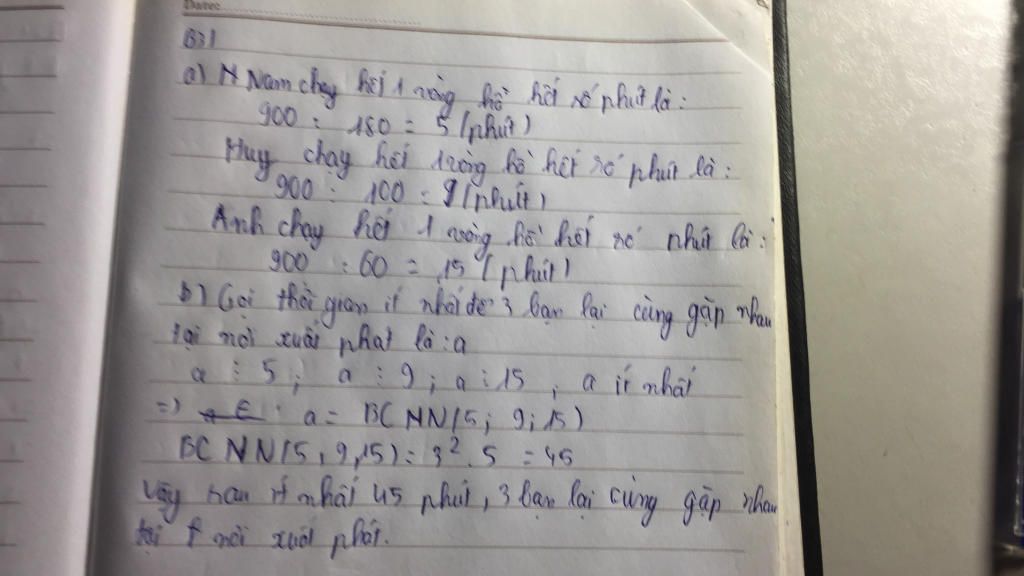 Date:
B31
a) N Nam chạy hết 1 vòng hồ hết số phút là:
900 : 180 = 5 (phút)
Huy chạy hết 1 vòng hồ hết số phút là:
900 : 100 = 9 (phút)
Anh chạy hết 1 vòng hồ hết số phút là:
900 : 60 = 15 (phút)
b) Gọi thời gian ít nhất để 3 bạn lại cùng gặp nhau
tại nơi xuất phát là: a
a ⋮ 5; a ⋮ 9; a ⋮ 15, a ít nhất
=) a = BCNN(5; 9; 15)
BCNN(5, 9, 15) = 3². 5 = 45
Vậy sau ít nhất 45 phút, 3 bạn lại cùng gặp nhau
tại nơi xuất phát.